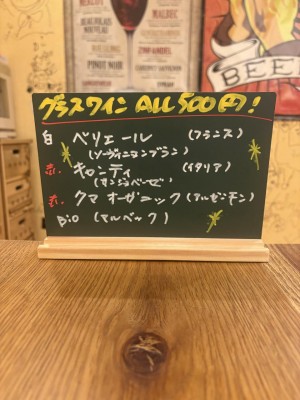 MERLOT
BEAUJOLAIS
NOUVEAU
MALBEC
RIESLING
ZINFANDEL
PINOT NOIR
CABERNET SAUVIGNON
BEE
グラスワイン ALL 500円!
白 ベリエール (フランス)
(ソーヴィニヨンブラン)
赤. キャンティ (イタリア)
(サンジョベーゼ)
赤. クマ オーガニック (アルゼンチン)
Bio (マルベック)